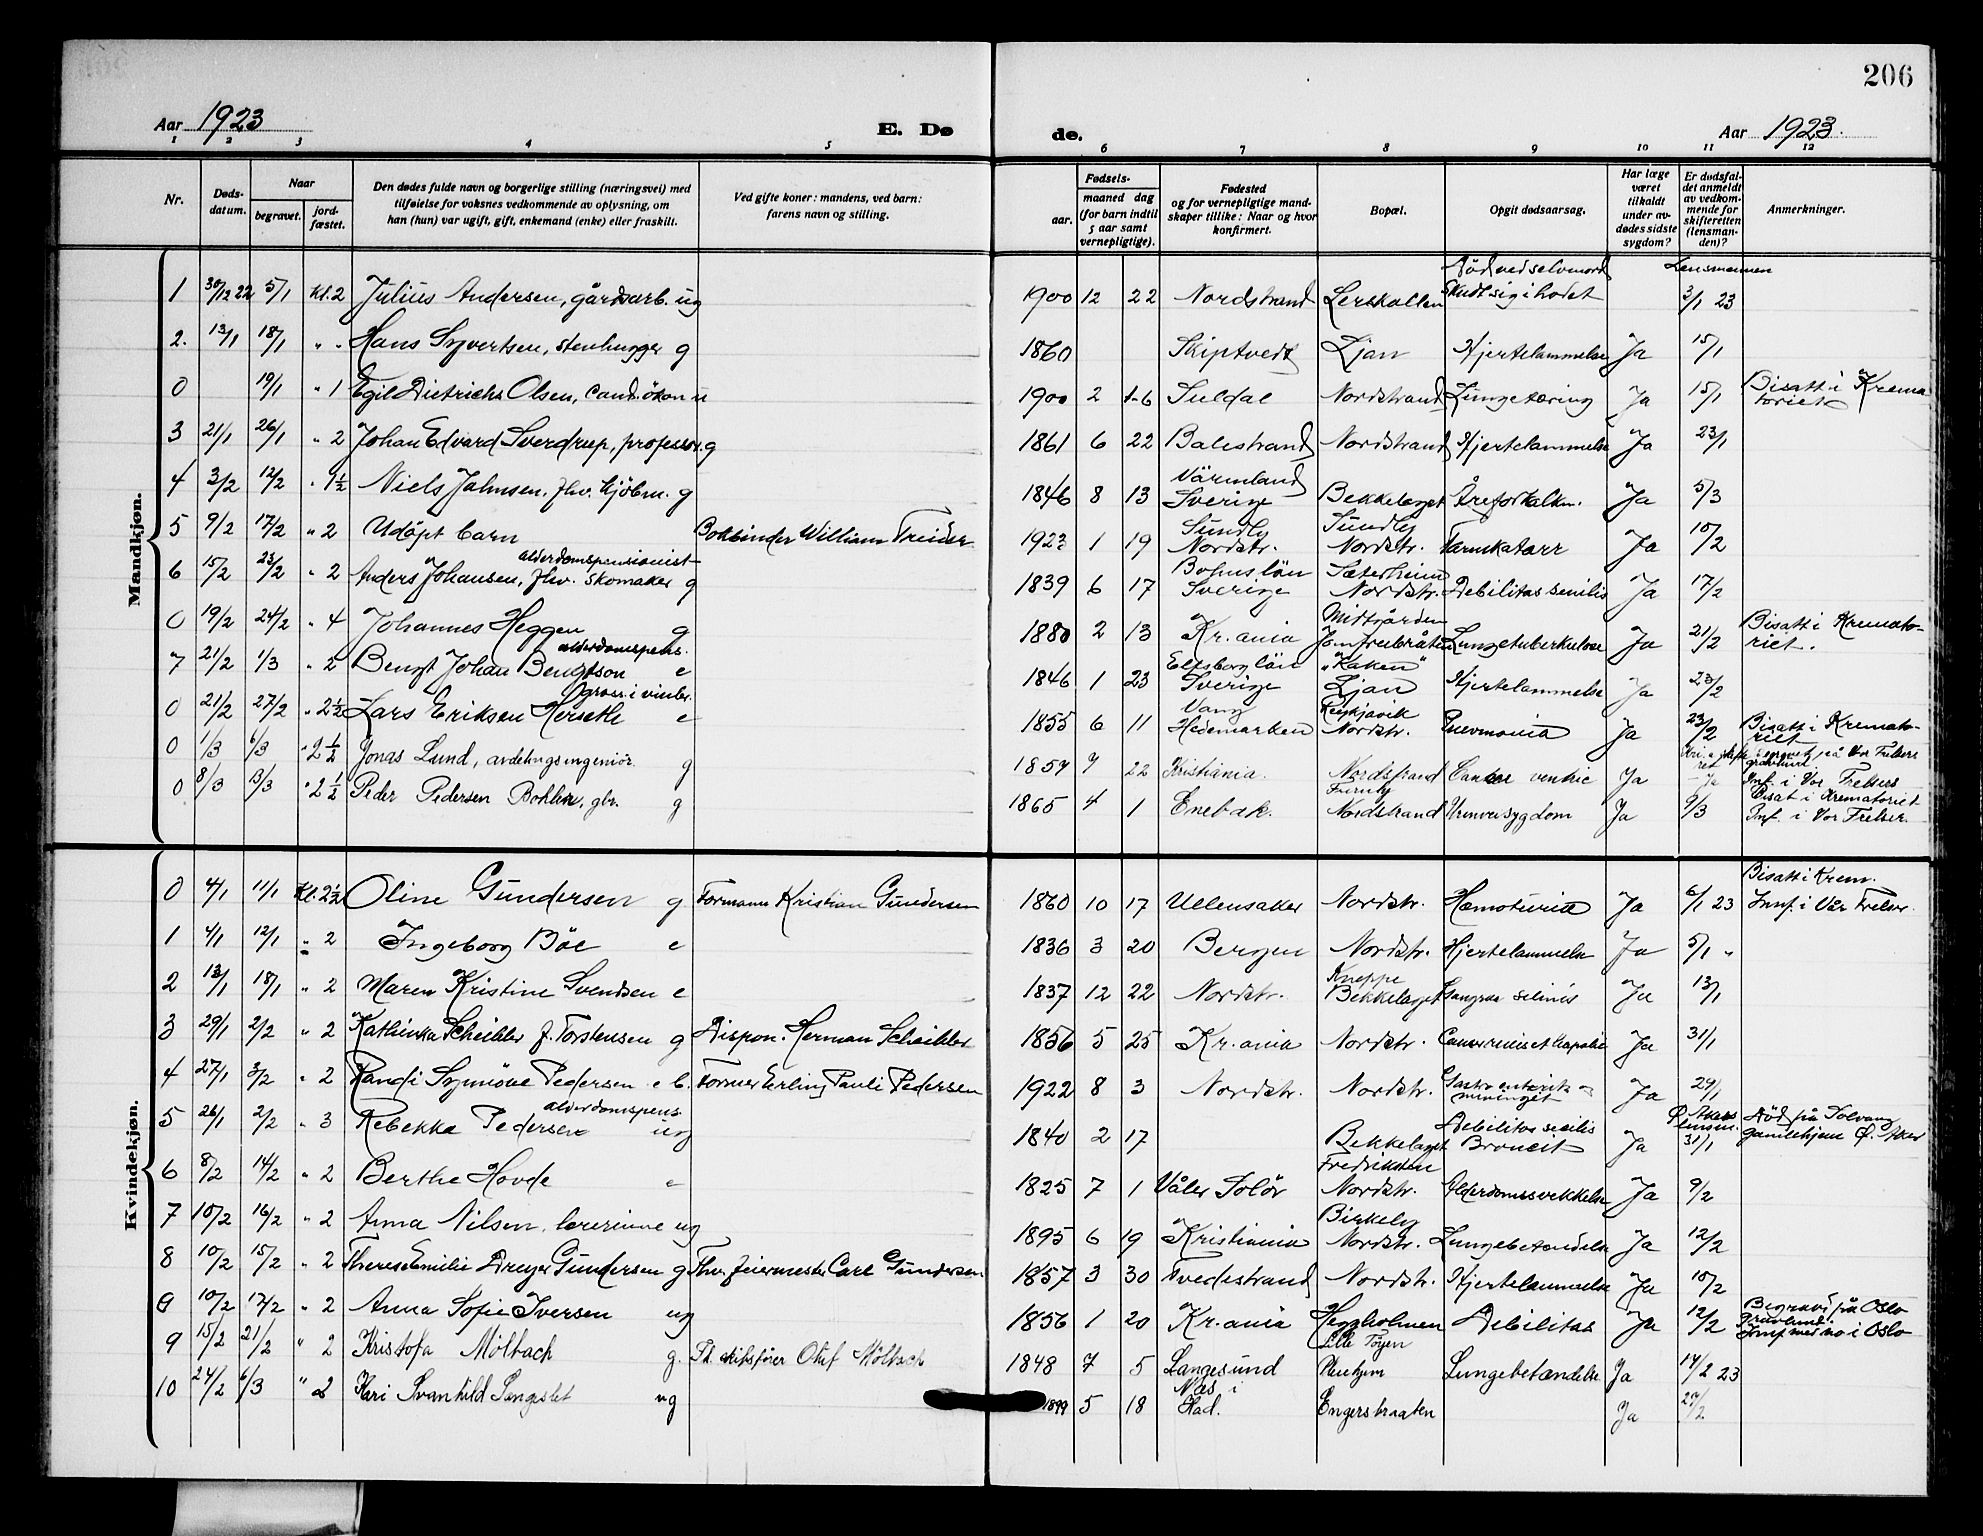 206
Aar 1923
E. Dø
de.
Aar 1923.
1 2 3 4 5 6 7 8 9 10 11 12
Nr.
Døds-
datum.
Naar
begravet.
jord-
fæstet.
Den dødes fulde navn og borgerlige stilling (næringsvei) med
tilføielse for voksnes vedkommende av oplysning, om
han (hun) var ugift, gift, enkemand (enke) eller fraskilt.
Ved gifte koner: mandens, ved barn:
farens navn og stilling.
Fødsels-
aar.
maaned dag
(for barn indtil
5 aar samt
vernepligtige).
Fødested
og for vernepligtige mand-
skaper tillike: Naar og hvor
konfirmert.
Bopæl.
Opgit dødsaarsag.
Har læge
været
tilkaldt
under av-
dødes sidste
sygdom?
Er dødsfal-
det anmeldt
av vedkom-
mende for
skifteretten
(lensman-
den)?
Anmerkninger.
Mandkjøn.
Død ved selvmord Lensmannen
1 30/12 22 5/1 Kl. 2 Julius Andersen, gårdsarb. ug 1900 12 22 Nordstrand Lerskallen Skudt sig i hodet 3/1 23
2. 13/1 18/1 " " Hans Syvertsen, stenhugger g 1860 Skiptvedt Ljan Hjertelammelse Ja 15/1
0 19/1 " 1 Egil Dietrichs Olsen, cand. økon u 1900 2 16 Suldal Nordstrand Lungetæring Ja 15/1 Bisatt i Krema
toriet
3 21/1 26/1 " 2 Johan Edvard Sverdrup, professor. g 1861 6 22 Balestrand Nordstrand Hjertelammelse Ja 23/1
Värmland
4 3/2 12/2 " 1½ Niels Jahnsen. fhv. kjøbm. g 1846 8 13 Sverige Bekkelaget Åreforkalkn. Ja 5/3
Sundby Sundby
5 9/2 17/2 " 2 Udøpt barn Bokbinder William Treider 1923 1 19 Nordstr. Nordstr. Tarmkatarr Ja 10/2
alderdomspensionist Bohuslän Sæterheim
6 15/2 23/2 " 2 Anders Johansen, fhv. skomaker g 1839 6 17 Sverige Nordstr. Debilitas senilis Ja 17/2
Midtgården
0 19/2 24/2 " 4 Johannes Heggen g 1880 2 13 Kr.ania Jomfrubråten Lungetuberkulose Ja 21/2 Bisatt i Kremato-
riet.
alderdomspens. Elfsborg län "Kaken"
7 21/2 1/3 " 2 Bengt Johan Bengtson e 1846 1 23 Sverige Ljan Hjertelammelse Ja 23/2
Vang Reykjavik
0 21/2 27/2 " 2½ Lars Eriksen Herseth e 1855 6 11 Hedemarken Nordstr. Pnevmonia Ja 23/2 Bisatt i Kremato-
riet
0 1/3 6/3 " 2½ Jonas Lund, avdelingsingeniør. g 1857 7 22 Kristiania. Nordstrand Cancer ventric Ja Ja
Inf. i Vor Frelsers
Furuly Bisat i Krematoriet
0 8/3 13/3 " 2½ Peder Pedersen Bohler, gbr. g 1865 4 1 Enebak. Nordstrand Urinveisygdom Ja 9/3 Inf. i Vor Frelser.
Kvindekjøn.
Bisatt i Krem.
0 4/1 11/1 Kl. 2½ Oline Gundersen g Formann Kristian Gundersen 1860 10 17 Ullensaker Nordstr. Hæmoturia Ja 6/1 23 Innf. i Vår Frelser.
1 4/1 12/1 " 2 Ingeborg Böe e 1836 3 20 Bergen Nordstr. Hjertelammelse Ja 5/1 "
Kneppe
2 13/1 18/1 " 2 Maren Kristine Svendsen e 1837 12 22 Nordstr. Bekkelaget Gangræn selinis Ja 13/1
3 29/1 2/2 " 2 Kathinka Scheibler f. Torstensen g Dispon. Herman Scheibler 1856 5 25 Kr.ania Nordstr. Ja 31/1
4 27/1 3/2 " 2 Randi Synnöve Pedersen e b. Former Erling Pauli Pedersen 1922 8 3 Nordstr. Nordstr. Gastro enterit og
meningit Ja 29/1
alderdomspens. Debilitas senilis Død på Solvang
5 26/1 2/2 " 3 Rebekka Pedersen ug 1840 2 17 Bekkelaget Broncit Ja 31/1 gamlehjem Ø. Aker
Fredrikstein
6 8/2 14/2 " 2 Berthe Hovde e 1825 7 1 Våler Solör Nordstr. Alderdomssvekkelse Ja 9/2
Birkely
7 10/2 16/2 " 2 Anna Nilsen. lærerinne ug 1895 6 19 Kristiania Nordstr. Lungebetændelse Ja 12/2
8 10/2 15/2 " 2 Therese Emilie Dreyer Gundersen g Fhv. feiermester Carl Gundersen 1857 3 30 Tvedestrand Nordstr. Hjertelammelse Ja 10/2
Begravd på Oslo
gravlund.
0 10/2 17/2 " 2 Anna Sofie Iversen ug 1856 1 20 Kr.ania Heggholmen Debilitas Ja 12/2 Innf med no i Oslo
Lille Tøyen
9 15/2 21/2 " 2 Kristofa Mölbach g. Fh. skibsfører Oluf Mölbach 1848 7 5 Langesund Pleiehjem Lungebetændelse Ja 17/2 23
Næs i
10 24/2 6/3 " 2 Kari Svanhild Sangeslet ug 1899 5 18 Had. Engerbraaten Ja 27/2